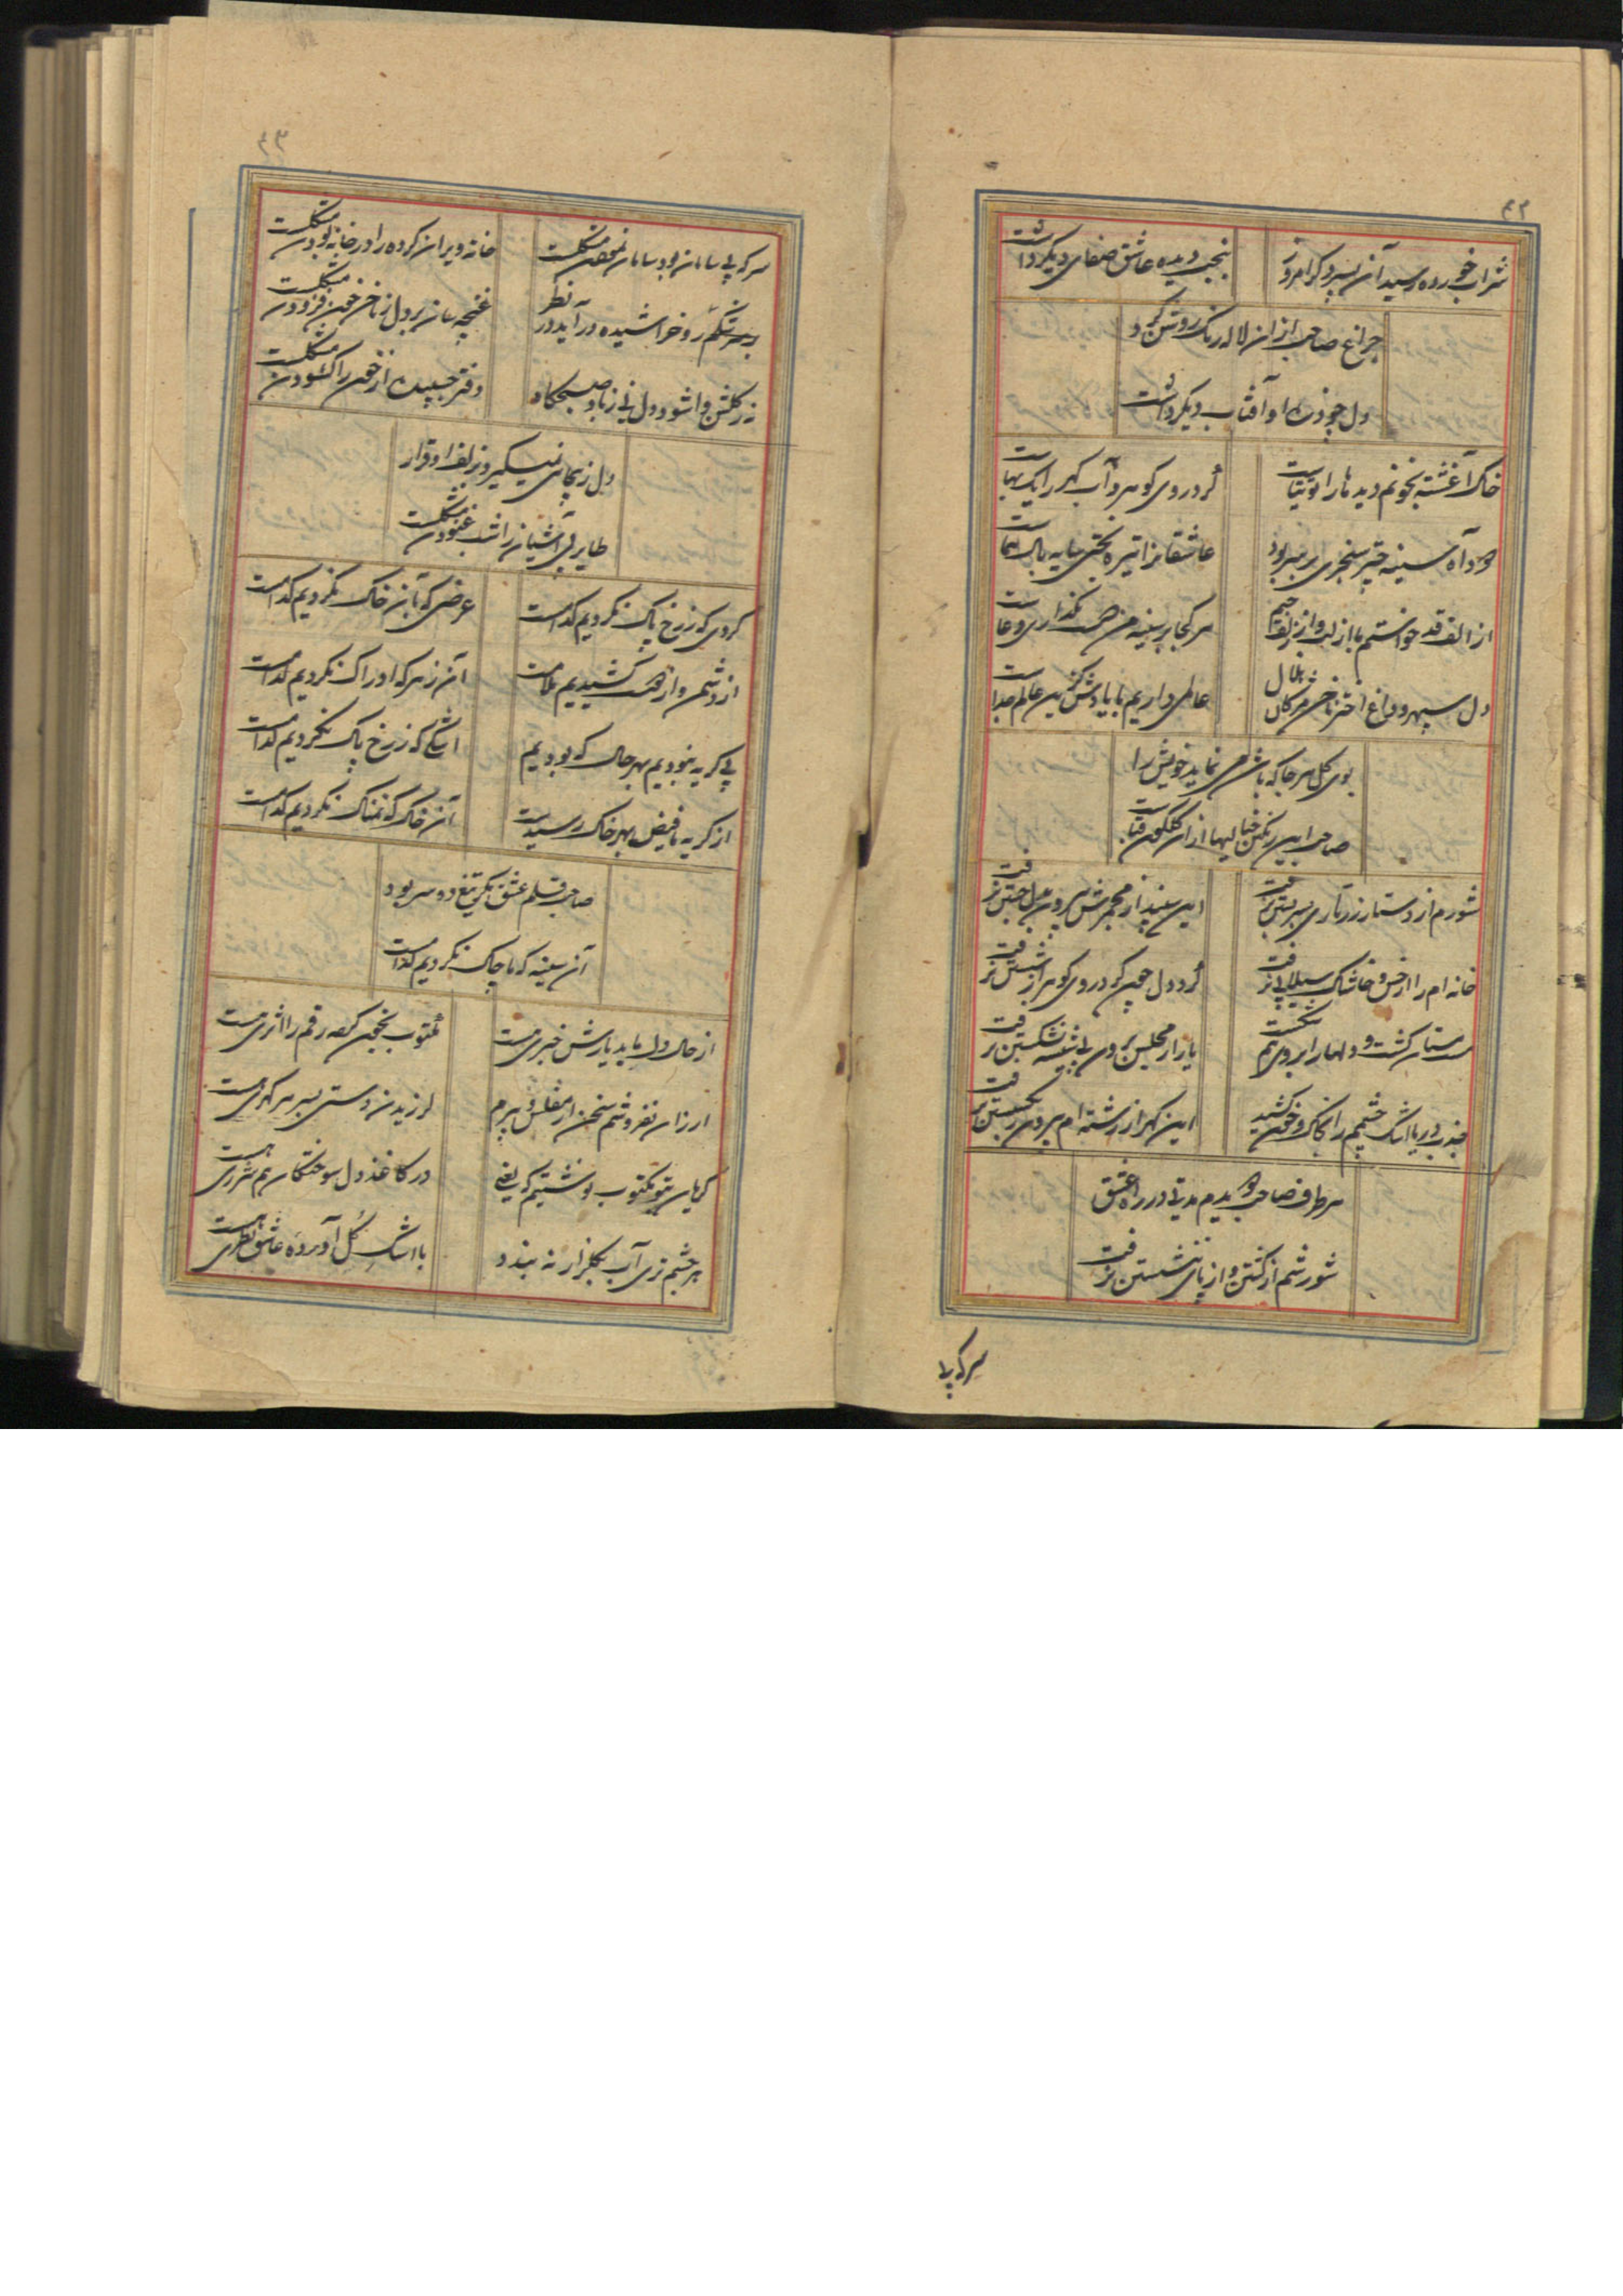 ۴۲
شراب خورده رسید آن پسر و کر امروز
بنجب دیده عاشق صفای دیگر داشت
چراغ صاحب ازان لاله رنگ روشن کرد
دل چو ذره او آفتاب دیگر داشت
خاک آغشته بخونم دیدها را توتیاست
گرد روی گوهر و آب گهر را یک بهاست
دود آه سینه چتر سنجری بر سر بود
عاشقانرا تیره بختی سایه بال هماست
از الف قد خواستم با از لب و از زلف جیم
هر کجا بر سینه من دست بگذاری دعاست
دل سپهر و داغ اختر ناخن مژگان هلال
عالمی داریم با یادش کزین عالم جداست
بوی گل هر جا که باشد می نماید خویش را
صاحب این رنگین خیالیها ازان گلگون قباست
شورم از دستار زرتاری بسر بستن نرفت
این سپند از مجمرش بیرون بدل جستن نرفت
خانه ام را از خس و خاشاک سیلابی نرفت
گرد دل چون گرد روی گوهر از شستن نرفت
مستان گشت و دلها را بروی هم شکست
یار از مجلس برون بی شیشه نشکستن نرفت
جذب دریا اشک چشمم را بخاک و خون کشید
این گهر از رشته ام بیرون ز بگسستن نرفت
هر طرف صاحب دویدم مدتی در راه عشق
شورشم از گشتن و از پای ننشستن نرفت
سر که بی
۴۳
سر که بی سامان بود سامان نمودن مشکلست
خانه ویران کرده را در خانه بودن مشکلست
بر سرشکم رو خراشیده در آید در نظر
غنچه سان بر دل ز ناخن خون فزودن مشکلست
نه ز گلشن وا شود دل نی ز باد صبحگاه
دفتر چسپیده از خون را گشودن مشکلست
دل ز بیجایی نمیگیرد بزلف او قرار
طایر بی آشیان را شب غنودن مشکلست
گردی که ز رخ پاک نکردیم کدامست
عرضی که بآن خاک نکردیم کدامست
از دشمن و از دوست کشیدیم ملامت
آن زهر که ادراک نکردیم کدامست
بی گریه نبودیم بهر حال که بودیم
اشکی که ز رخ پاک نکردیم کدامست
از گریه ما فیض بهر خاک رسیدست
آن خاک که نمناک نکردیم کدامست
صاحب قلم عشق یکی تیغ دو سر بود
آن سینه که ما چاک نکردیم کدامست
از حال دل ما بد یارش خبری هست
مکتوب بخون کرده رقم را اثری هست
ارزان نفروشم سخن ار مفلس و پیرم
لرزیدن دستی بسر هر گهری هست
گریان بتو مکتوب نوشتیم که یعنی
در کاغذ دل سوختگان هم شرری هست
هر چشم تری آب بگلزار نه بندد
با اشک گل آورده عاشق نظری هست